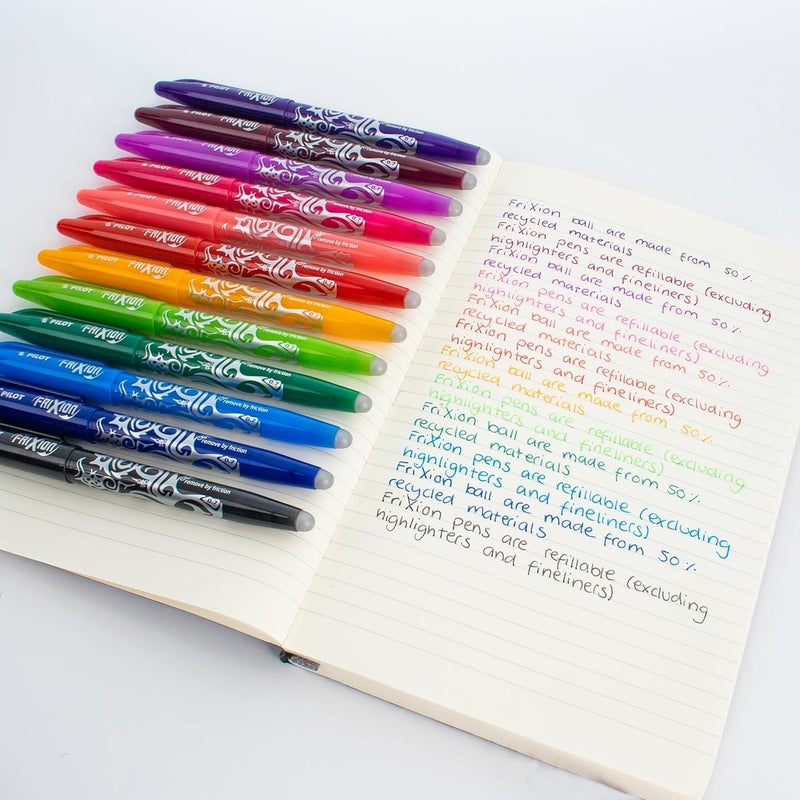 PILOT FRIXION remove by friction
PILOT FRIXION 0.7
PILOT FRIXION 0.7
PILOT FRIXION 0.7
PILOT FRIXION remove by friction
PILOT FRIXION 0.7
FRIXION 0.7
FRIXION 0.7
PILOT FRIXION 0.7
PILOT FRIXION remove by friction
PILOT FRIXION remove by friction 0.7
PILOT FRIXION remove by friction 0.7
FriXion ball are made from 50%
recycled materials
FriXion pens are refillable (excluding
highlighters and fineliners)
FriXion ball are made from 50%
recycled materials
FriXion pens are refillable (excluding
highlighters and fineliners)
FriXion ball are made from 50%
recycled materials
FriXion pens are refillable (excluding
highlighters and fineliners)
FriXion ball are made from 50%
recycled materials
FriXion pens are refillable (excluding
highlighters and fineliners)
FriXion ball are made from 50%
recycled materials
FriXion pens are refillable (excluding
highlighters and fineliners)
FriXion ball are made from 50%
recycled materials
FriXion pens are refillable (excluding
highlighters and fineliners)